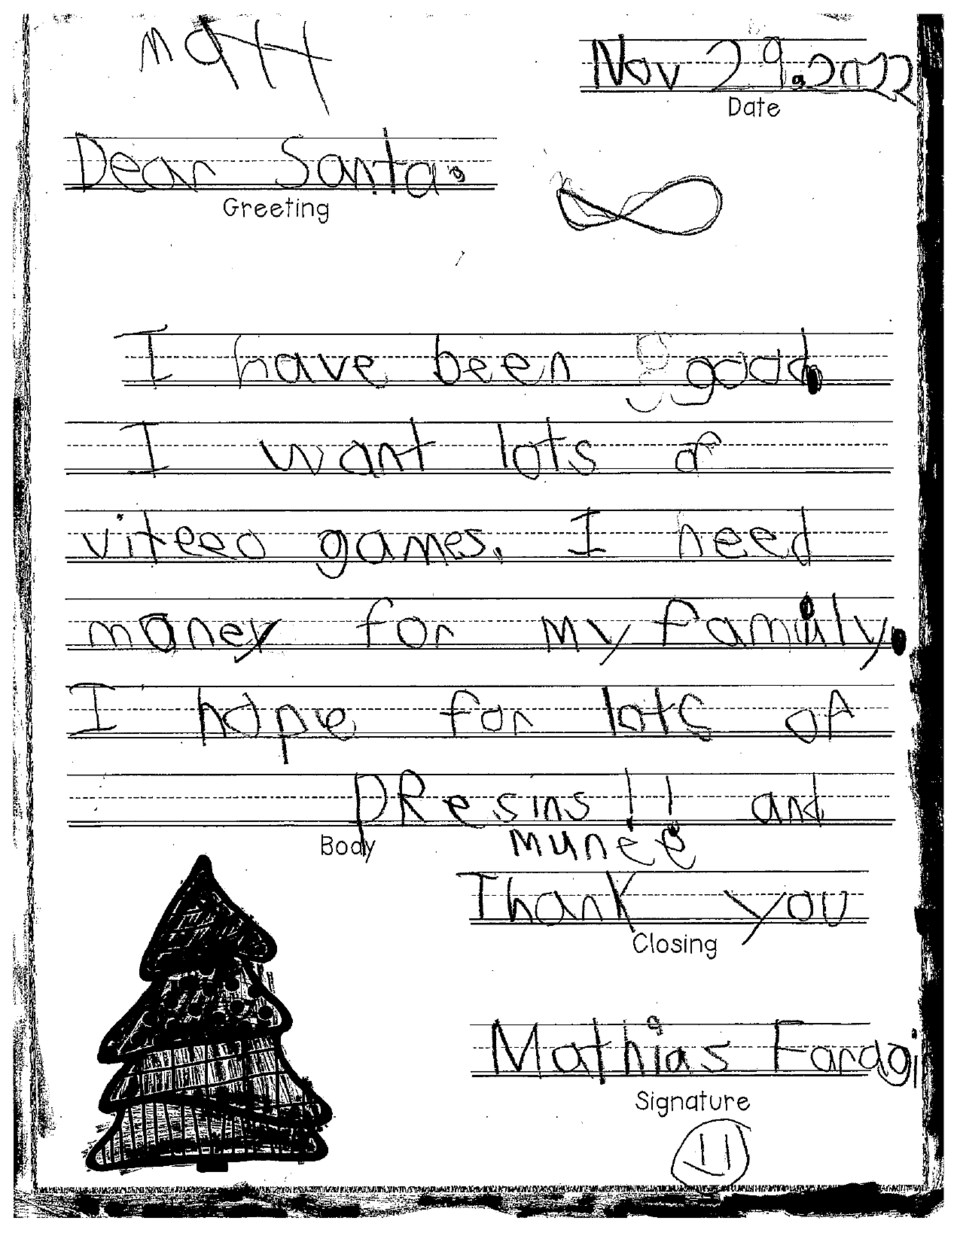 Matt
Nov 29.2022
Date
Dear Santa.
Greeting
I have been good.
I want lots of
viteeo games. I need
money for my family.
I hope for lots of
PResins!! and
munee
Body
Thank you
Closing
Mathias Fardoi
Signature